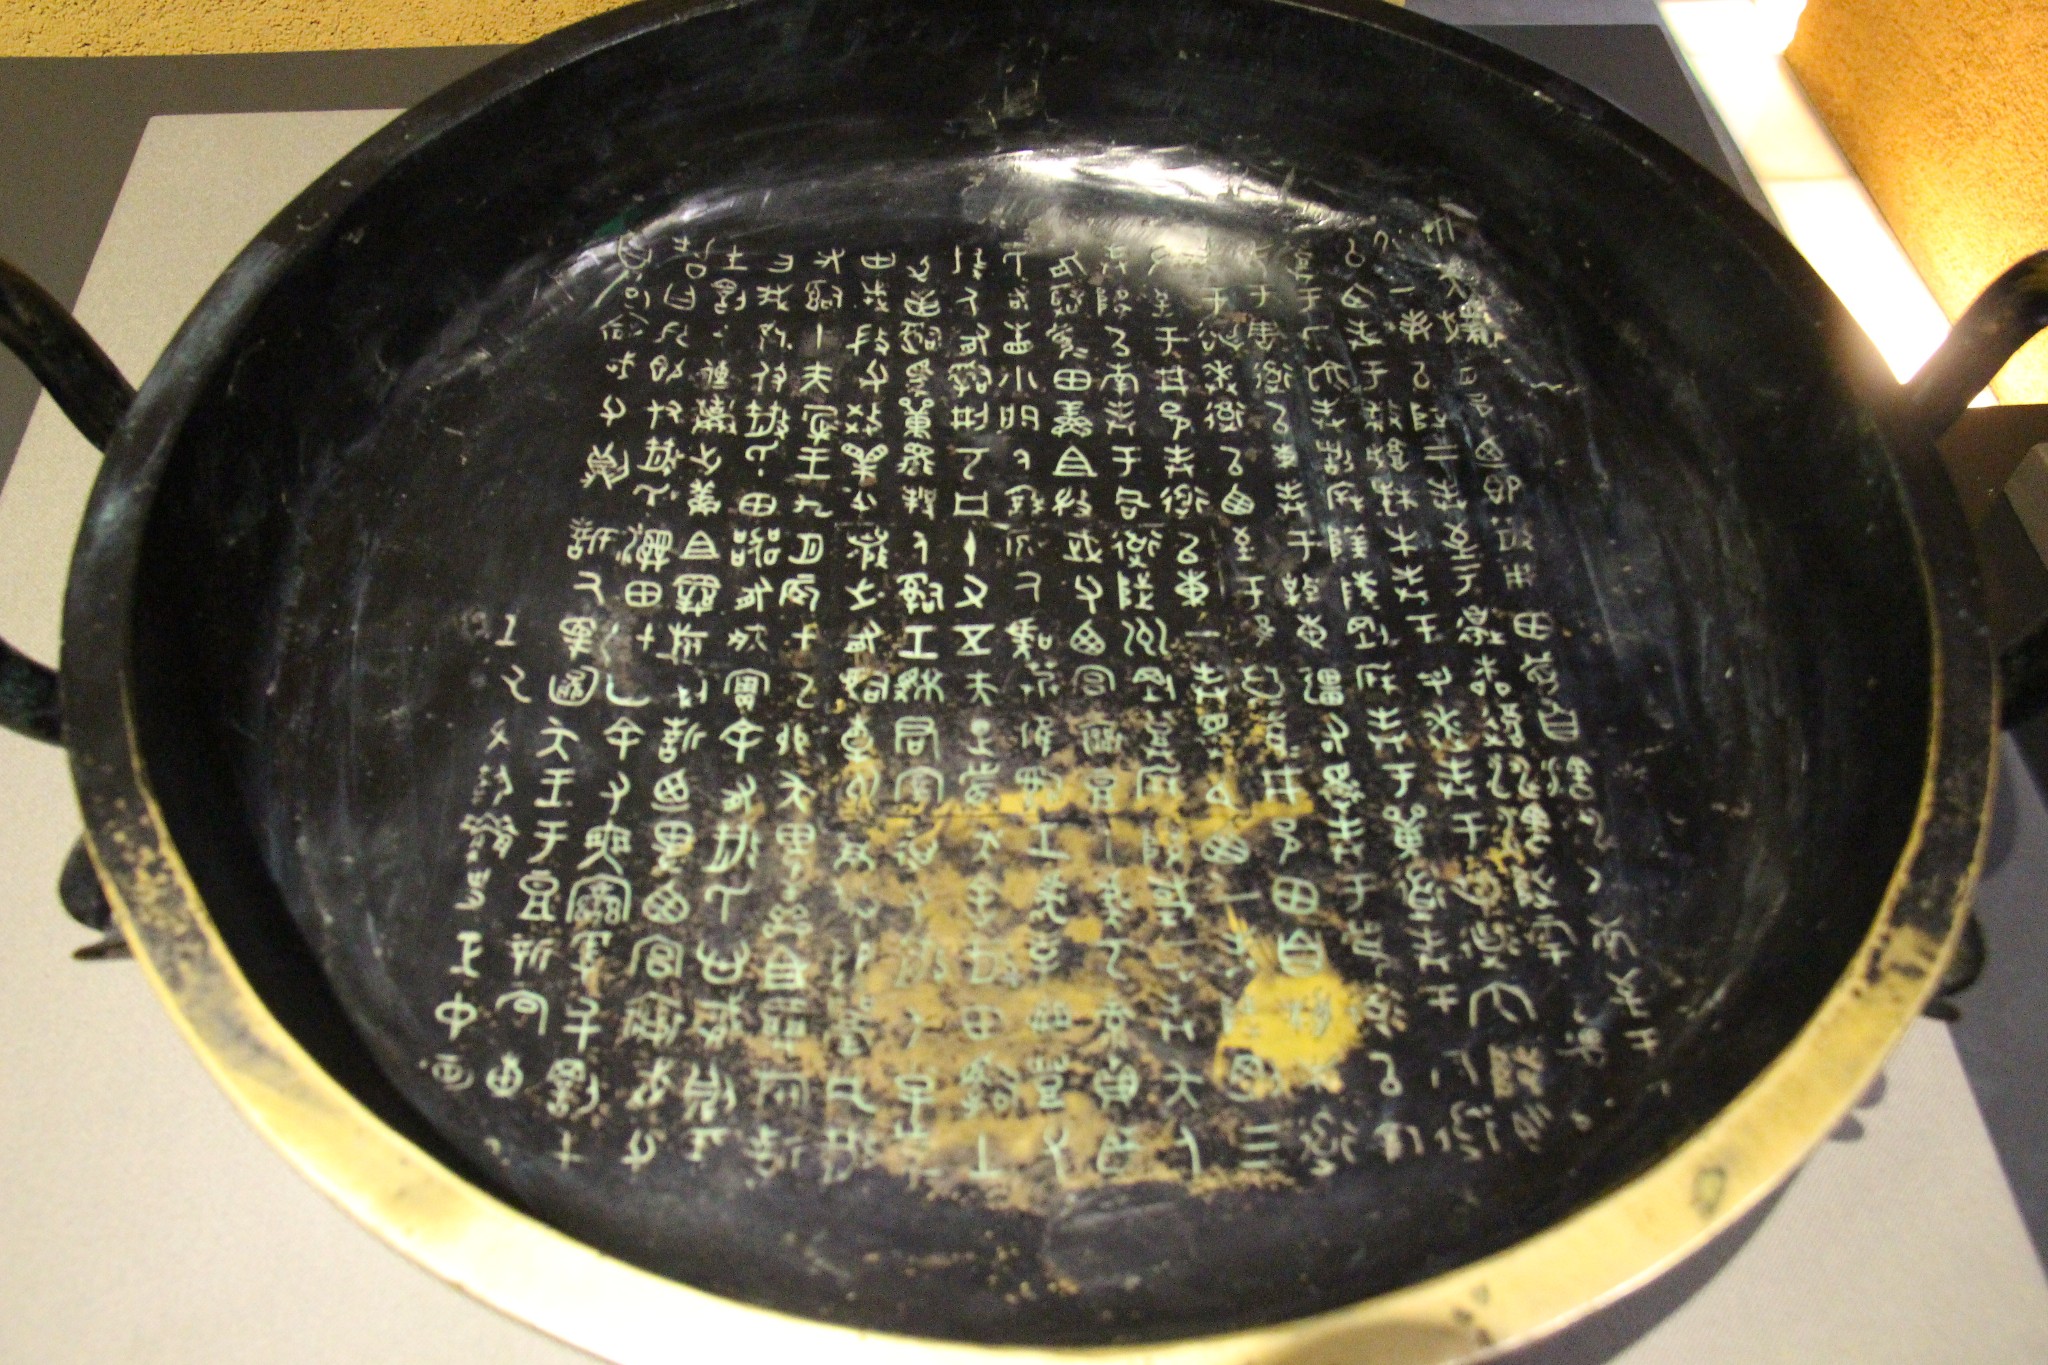 用夨撲散邑廼即散用田眉自瀗涉以南至于大
沽一奉以陟二奉至于邊柳復涉瀗陟雩
以西奉于播城楮木奉于芻逨奉于芻道內陟芻
登于厂湶奉諸陵剛奉于道奉于原道
奉于周道以東奉于東疆右還奉于眉道以南
奉于逨道以西至于莫眉井邑田自桹木道
左至于井邑奉道以東一奉還以西一奉陟剛三
奉降以南奉于同道陟州剛登降棫二奉夨人
有𤔲眉田鮮且微武父西宮襄豆人虞丂彔貞師
氏右眚小門人原人虞艿淮𤔲工虎孝豐父
人有𤔲刑丂凡十又五夫正眉夨舍散田𤔲土
屰寅𤔲馬單人𤔲工君宰德父散人小子
眉田戎微父效櫐父襄之有𤔲橐州從凡散
有𤔲十夫唯王九月辰才乙卯夨卑鮮且旅誓
曰我既付散氏田器有爽實余有散氏心賊則爰
千罰千傳棄之鮮且旅則誓廼卑西宮襄武父
誓曰我既付散氏濕田牆田余又爽變爰千罰千
西宮襄武父則誓厥受圖夨王于豆新宮東廷
厥左執史正中農